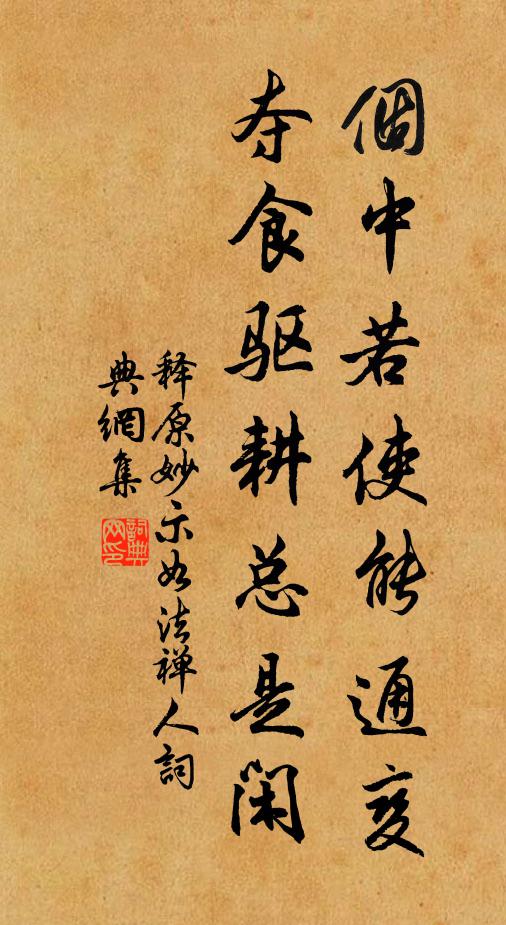 個中若使能通变
夺食驱耕总是闲
释原妙示如法禅人詞
典網集
詞典网印